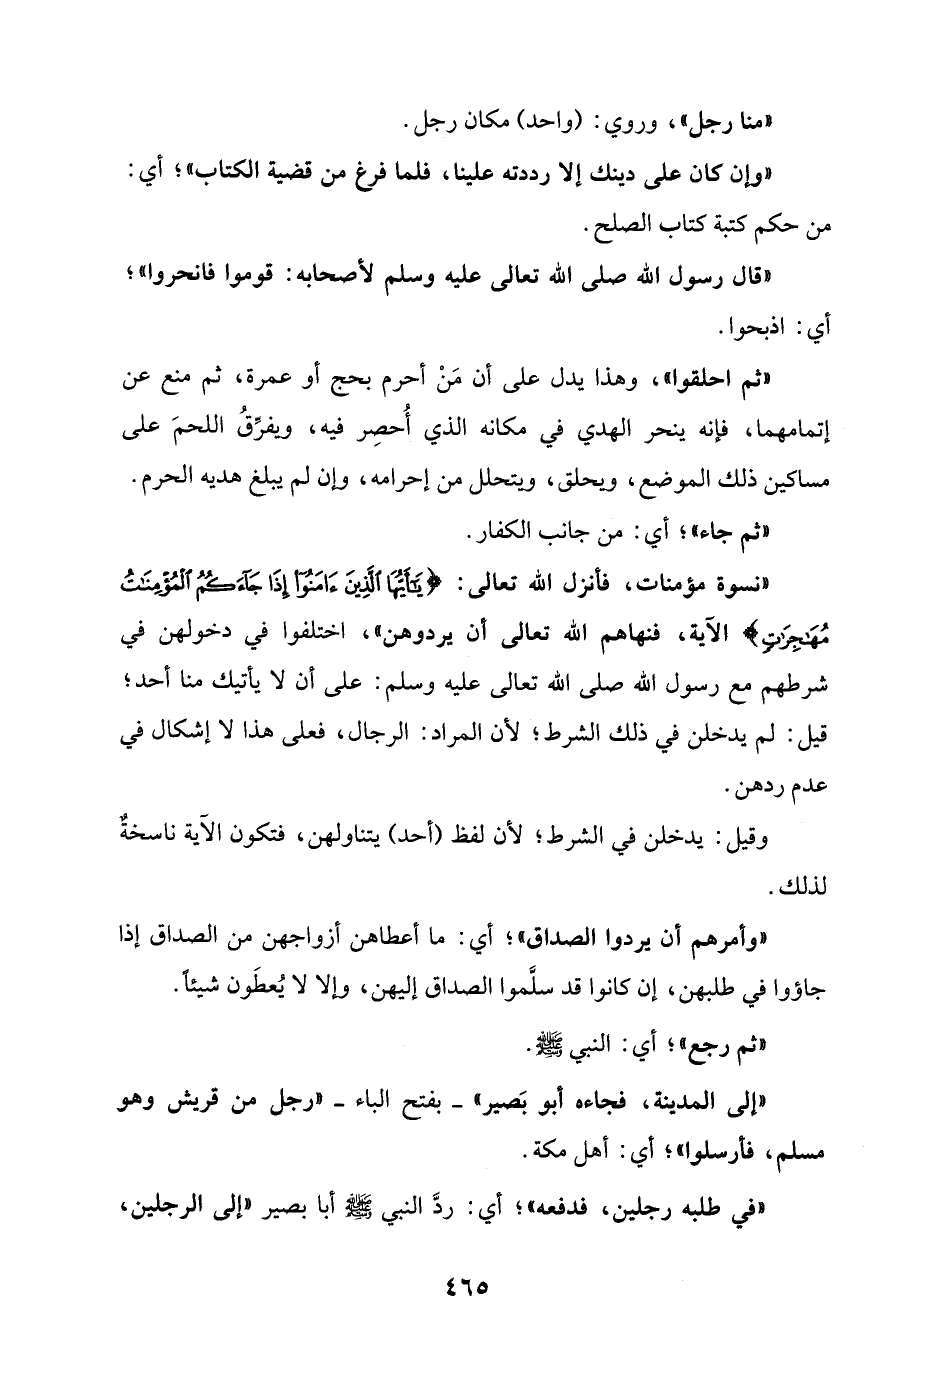 «منا رجل»، وروي: (واحد) مكان رجل.
«وإن كان على دينك إلا رددته علينا، فلما فرغ من قضية الكتاب»؛ أي:
من حكم كتبة كتاب الصلح.
«قال رسول الله صلى الله تعالى عليه وسلم لأصحابه: قوموا فانحروا»؛
أي: اذبحوا.
«ثم احلقوا»، وهذا يدل على أن مَنْ أحرم بحج أو عمرة، ثم منع عن
إتمامهما، فإنه ينحر الهدي في مكانه الذي أُحصِر فيه، ويفرِّقُ اللحمَ على
مساكين ذلك الموضع، ويحلق، ويتحلل من إحرامه، وإن لم يبلغ هديه الحرم.
«ثم جاء»؛ أي: من جانب الكفار.
«نسوة مؤمنات، فأنزل الله تعالى: ﴿يَٰٓأَيُّهَا ٱلَّذِينَ ءَامَنُوٓا۟ إِذَا جَآءَكُمُ ٱلْمُؤْمِنَٰتُ
مُهَٰجِرَٰتٍ﴾ الآية، فنهاهم الله تعالى أن يردوهن»، اختلفوا في دخولهن في
شرطهم مع رسول الله صلى الله تعالى عليه وسلم: على أن لا يأتيك منا أحد؛
قيل: لم يدخلن في ذلك الشرط؛ لأن المراد: الرجال، فعلى هذا لا إشكال في
عدم ردهن.
وقيل: يدخلن في الشرط؛ لأن لفظ (أحد) يتناولهن، فتكون الآية ناسخةٌ
لذلك.
«وأمرهم أن يردوا الصداق»؛ أي: ما أعطاهن أزواجهن من الصداق إذا
جاؤوا في طلبهن، إن كانوا قد سلَّموا الصداق إليهن، وإلا لا يُعطَون شيئاً.
«ثم رجع»؛ أي: النبي ﷺ.
«إلى المدينة، فجاءه أبو بَصير» ـ بفتح الباء ـ «رجل من قريش وهو
مسلم، فأرسلوا»؛ أي: أهل مكة.
«في طلبه رجلين، فدفعه»؛ أي: ردَّ النبي ﷺ أبا بصير «إلى الرجلين،
٤٦٥